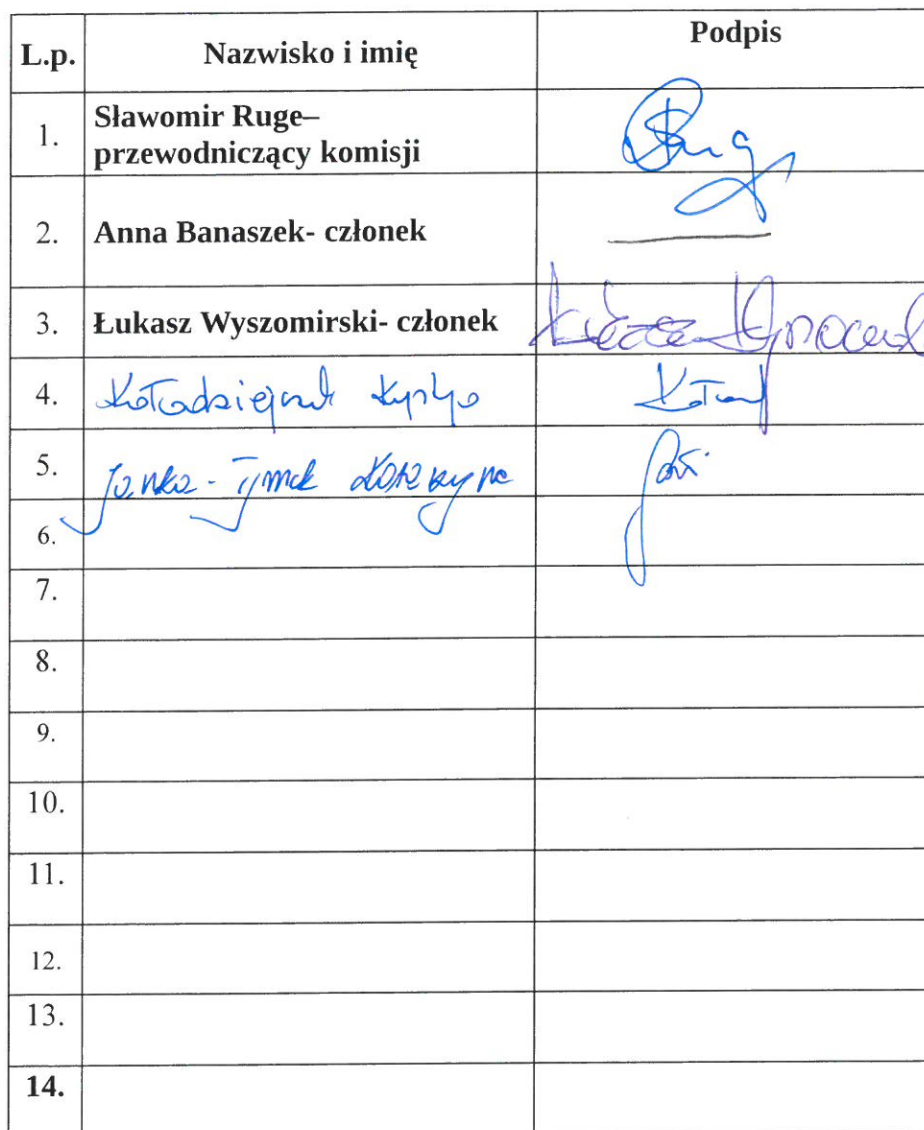 L.p. Nazwisko i imię Podpis
1. Sławomir Ruge–
przewodniczący komisji
2. Anna Banaszek- członek
3. Łukasz Wyszomirski- członek
4. Kołodziejczak
5. Janka-Tymek Katarzyna
6.
7.
8.
9.
10.
11.
12.
13.
14.